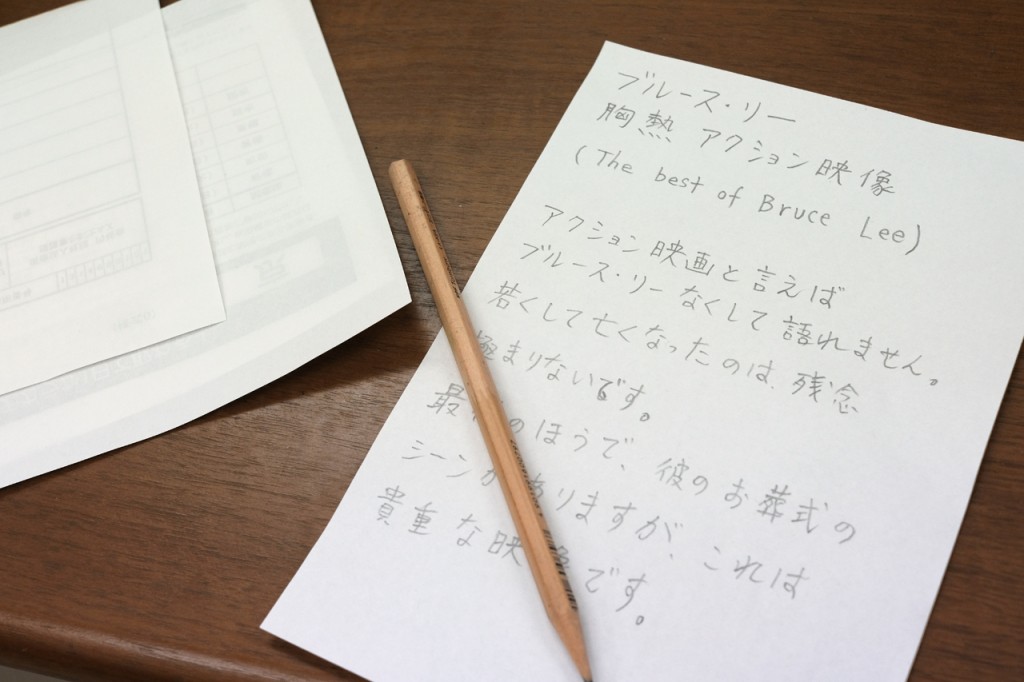 ブルース・リー
胸熱 アクション映像
(The best of Bruce Lee)
アクション映画と言えば
ブルース・リーなくして語れません。
若くして亡くなったのは、残念
極まりないです。
最後のほうで、彼のお葬式の
シーンがありますが、これは
貴重な映像です。